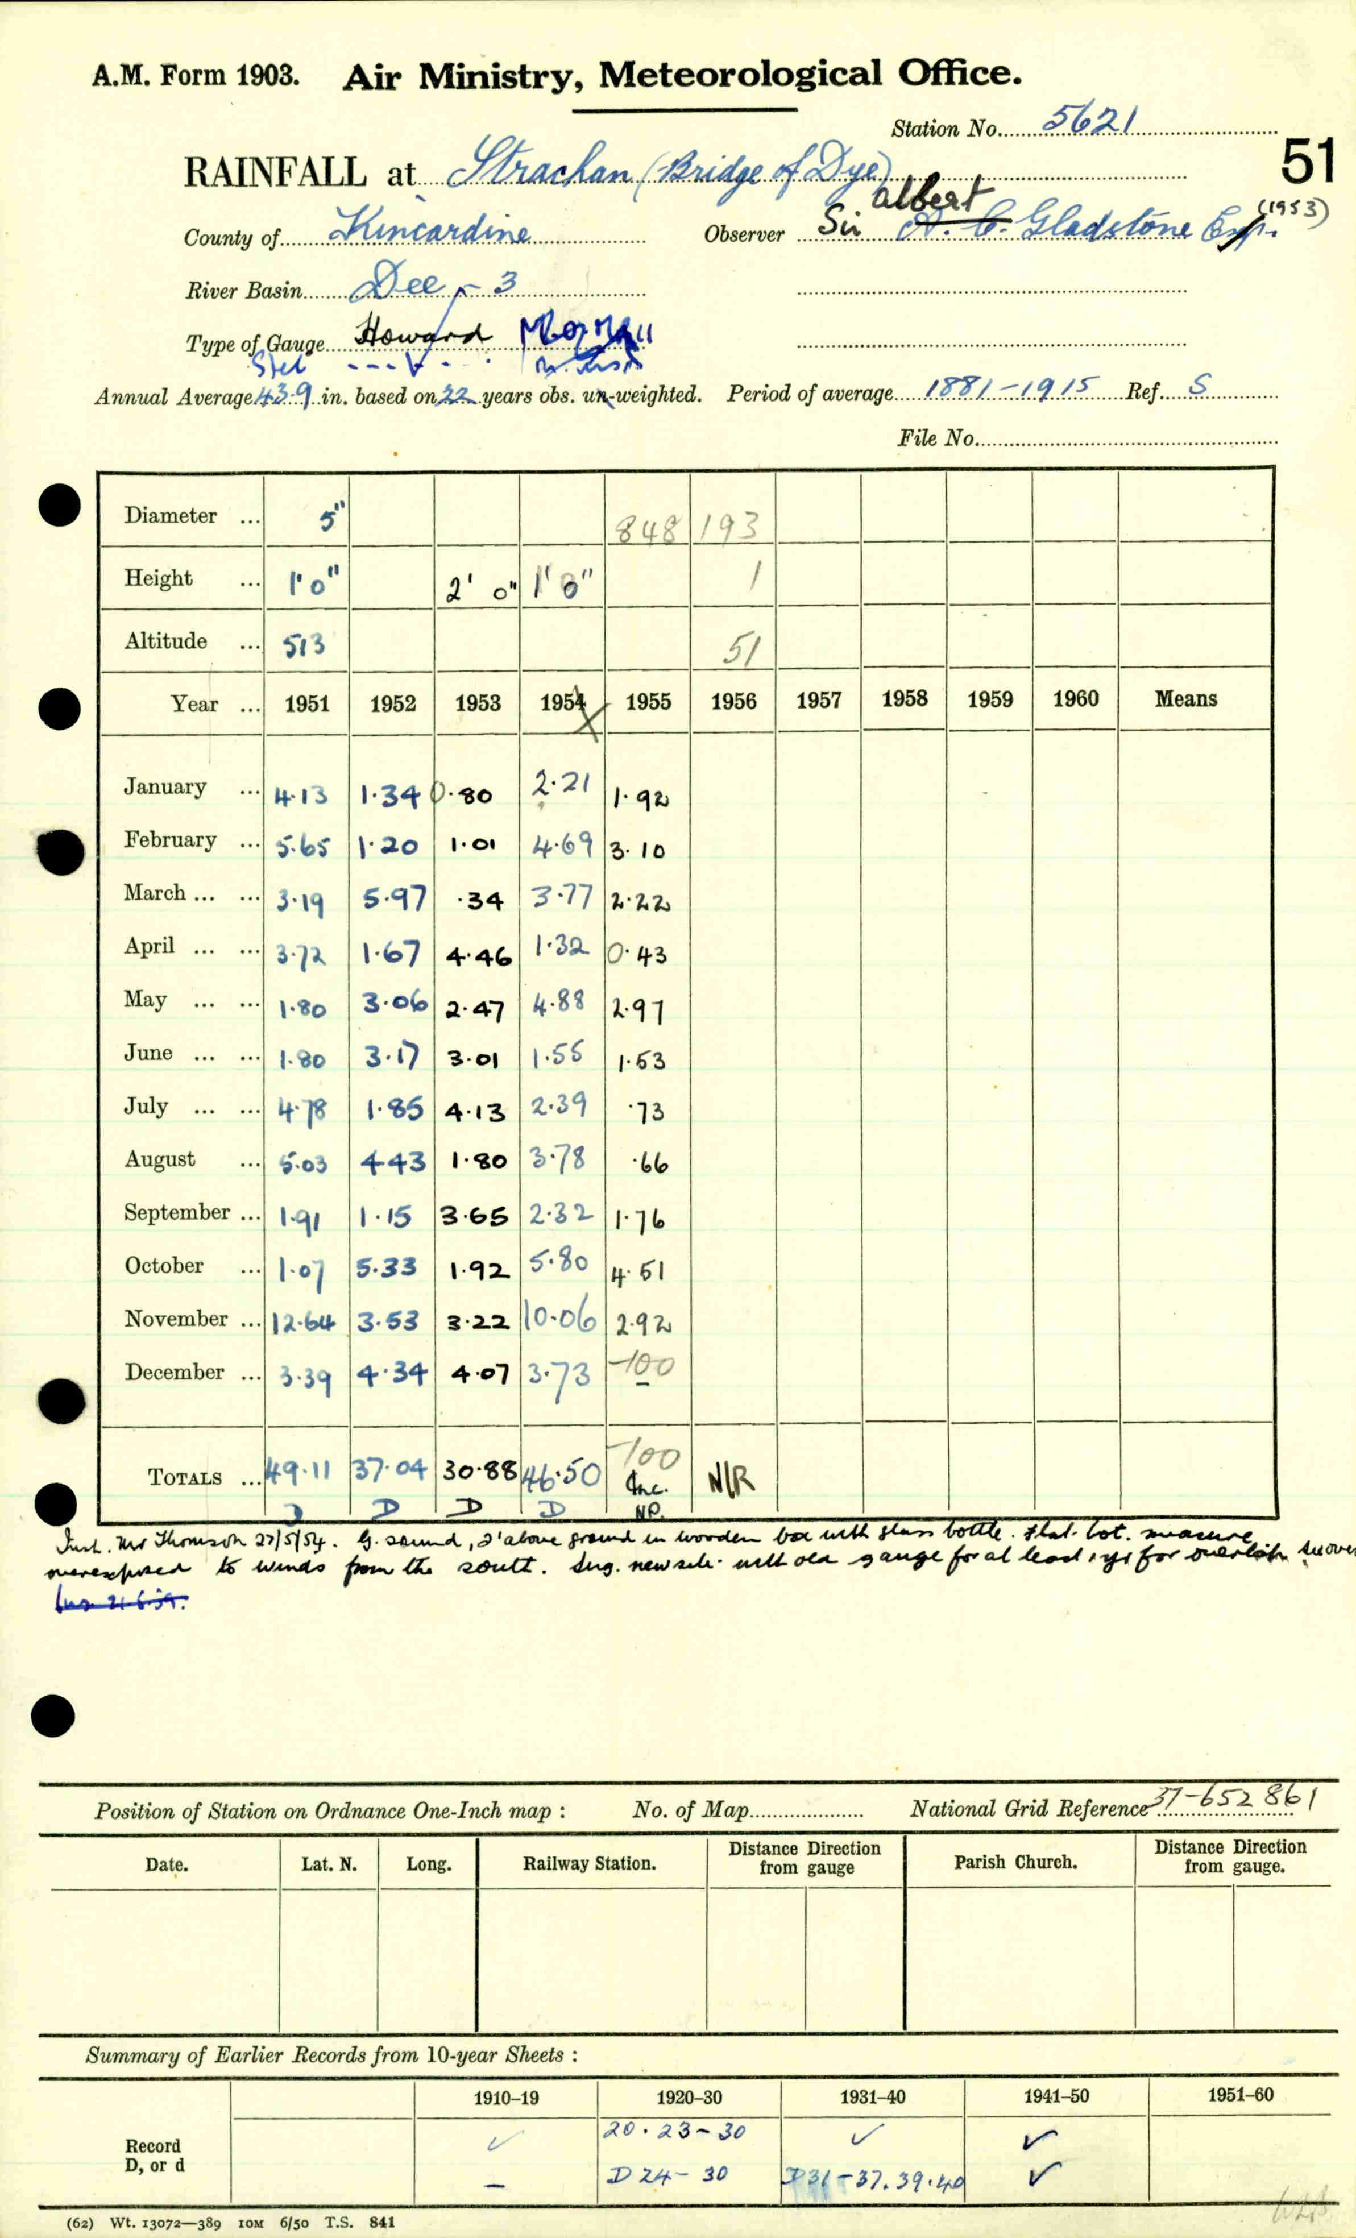 A.M. Form 1903. Air Ministry, Meteorological Office.
Station No. 5621
51
RAINFALL at Strachan (Bridge of Dye)
albert
County of Kincardine Observer Sir A. C. Gladstone Esq. (1953)
River Basin Dee - 3
Type of Gauge Howard
Annual Average 43.9 in. based on 22 years obs. un-weighted. Period of average 1881-1915 Ref. S
File No.
Diameter ... 5" 848 193
Height ... 1' 0" 2' 0" 1' 0" 1
Altitude ... 513 51
Year ... 1951 1952 1953 1954 1955 1956 1957 1958 1959 1960 Means
January ... 4.13 1.34 0.80 2.21 1.92
February ... 5.65 1.20 1.01 4.69 3.10
March ... ... 3.19 5.97 .34 3.77 2.22
April ... ... 3.72 1.67 4.46 1.32 0.43
May ... ... 1.80 3.06 2.47 4.88 2.97
June ... ... 1.80 3.17 3.01 1.55 1.53
July ... ... 4.78 1.85 4.13 2.39 .73
August ... 5.03 4.43 1.80 3.78 .66
September ... 1.91 1.15 3.65 2.32 1.76
October ... 1.07 5.33 1.92 5.80 4.51
November ... 12.64 3.53 3.22 10.06 2.92
December ... 3.39 4.34 4.07 3.73 -100
-100
TOTALS ... 49.11 37.04 30.88 46.50 Inc. N/R
D D D D NP.
Inst. Mr Thomson 27/5/54. G. sound, 2' above ground in wooden box with glass bottle. flat. bot. measure
overexposed to winds from the south. Sug. new site with old gauge for at least 1 yr for overlap
Position of Station on Ordnance One-Inch map : No. of Map National Grid Reference 37-652861
Date. Lat. N. Long. Railway Station. Distance from gauge Direction Parish Church. Distance from gauge. Direction
Summary of Earlier Records from 10-year Sheets :
1910–19 1920–30 1931–40 1941–50 1951–60
Record ✓ 20.23-30 ✓ ✓
D, or d — D 24-30 D31-37.39.40 ✓
(62) Wt. 13072—389 10M 6/50 T.S. 841